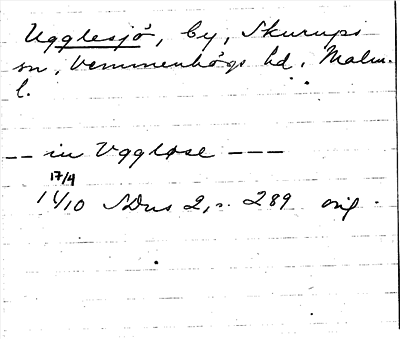 Ugglesjö, by, Skurups
sn, Vemmenhögs hd, Malm.
l.
-- in Vggløse ---
17/9
1410 SDns 2, s. 289 orig.